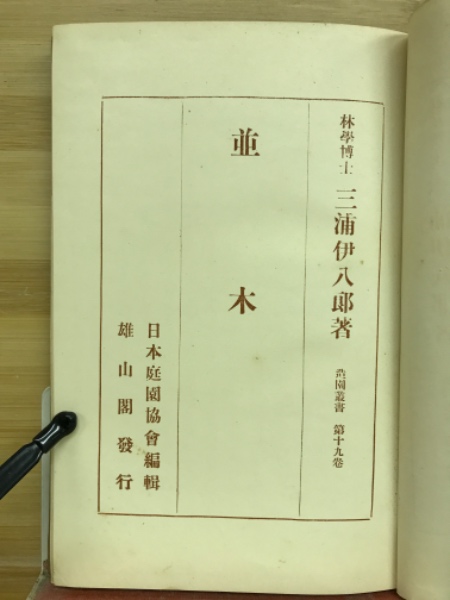 林學博士 三浦伊八郎著
造園叢書 第十九卷
並木
日本庭園協會編輯
雄山閣發行